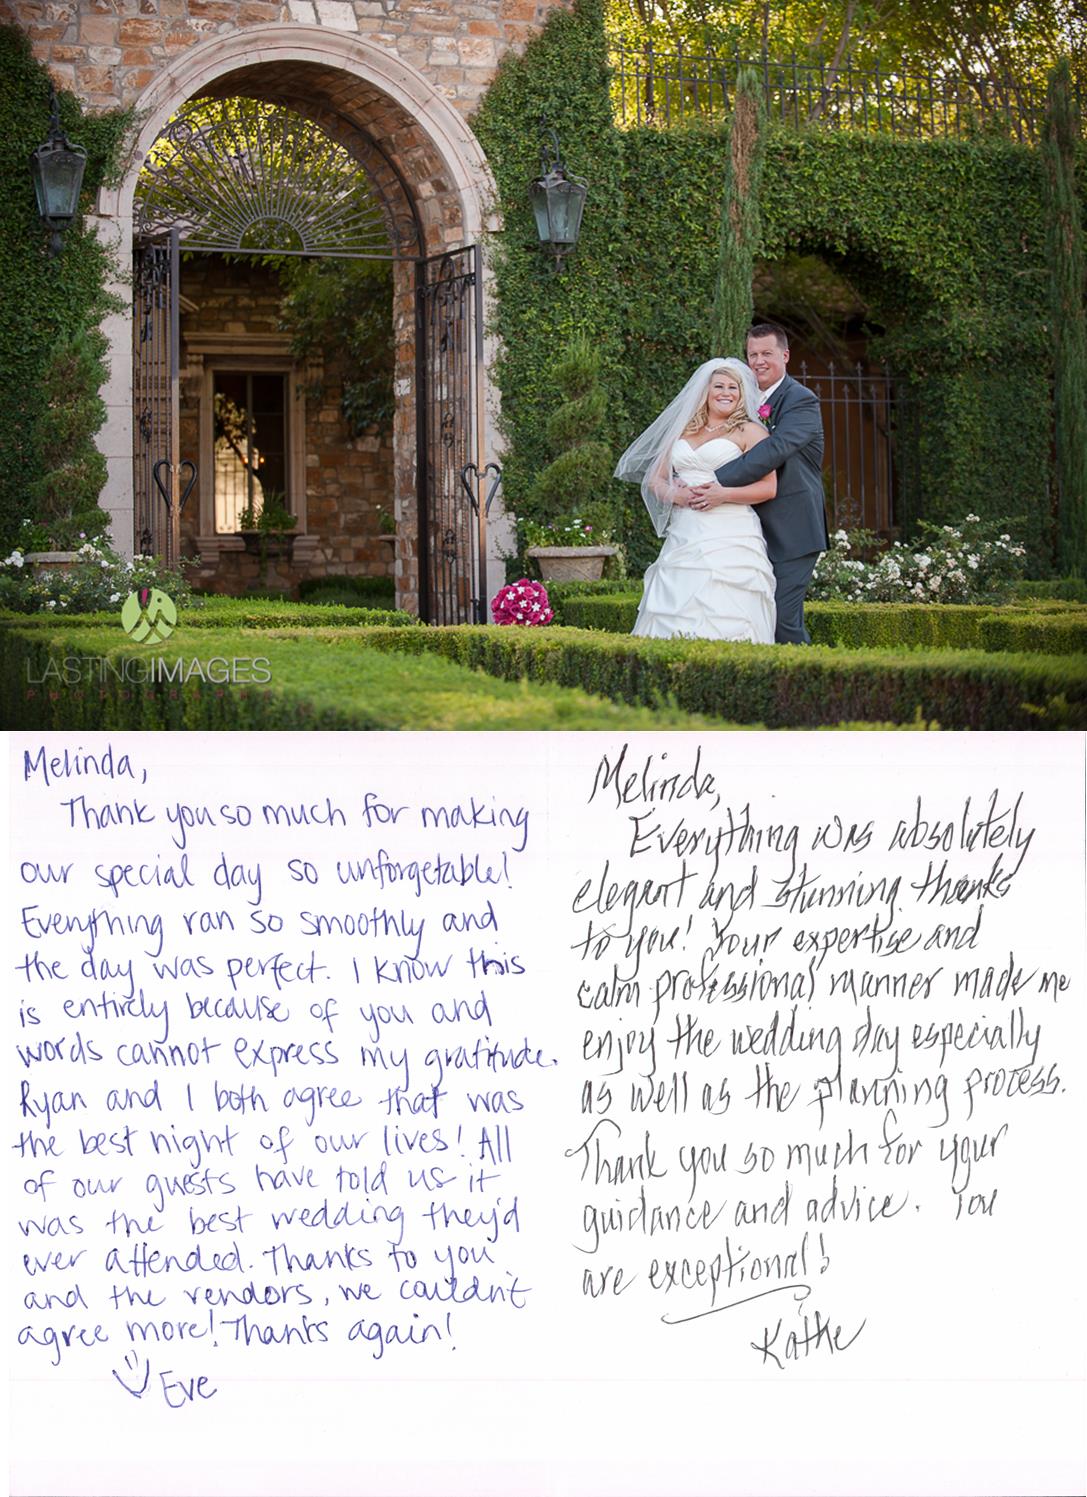 LASTINGIMAGES
PHOTOGRAPHY
Melinda,
Thank you so much for making
our special day so unforgetable!
Everything ran so smoothly and
the day was perfect. I know this
is entirely because of you and
words cannot express my gratitude.
Ryan and I both agree that was
the best night of our lives! All
of our guests have told us it
was the best wedding they'd
ever attended. Thanks to you
and the vendors, we couldn't
agree more! Thanks again!
Eve
Melinda,
Everything was absolutely
elegant and stunning thanks
to you! Your expertise and
calm professional manner made me
enjoy the wedding day especially
as well as the planning process.
Thank you so much for your
guidance and advice. You
are exceptional!
Kathe